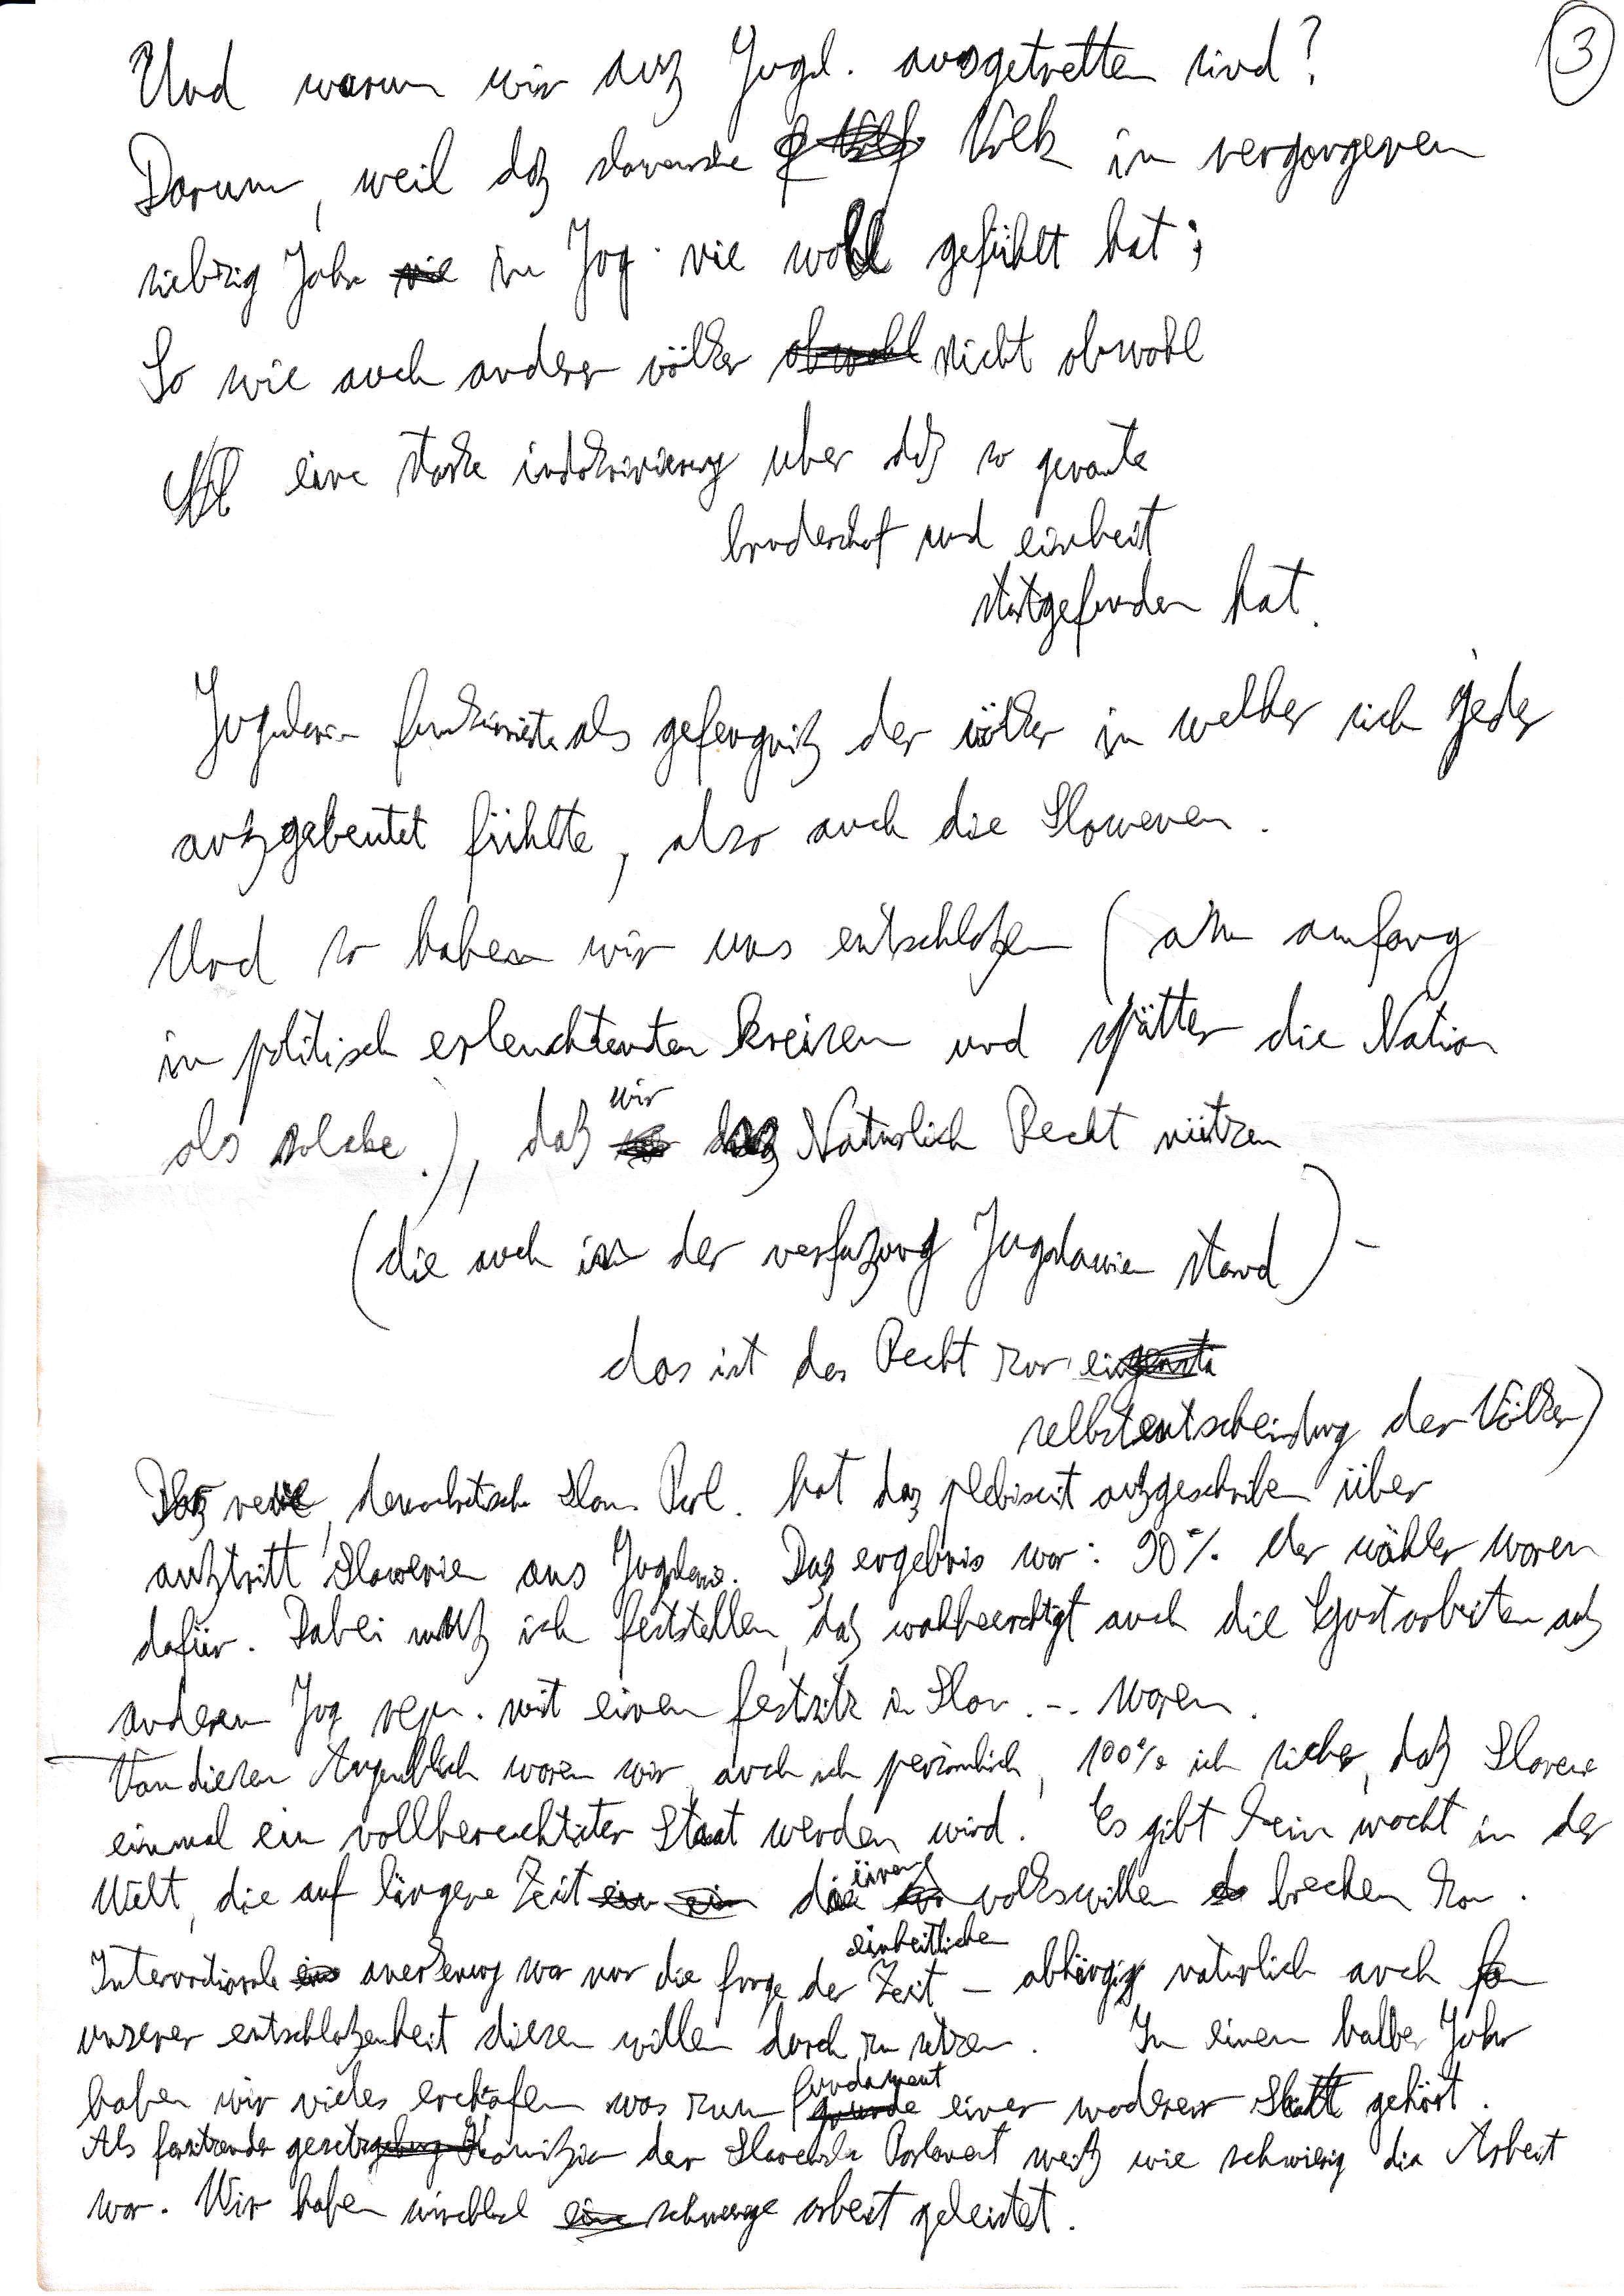 3
Und warum wir auß Jugl. ausgetretten sind?
Darum, weil daß slovenske Volk in vergangenen
siebzig Jahr in Jog. nie wohl gefühlt hat;
So wie auch andere völker nicht obwohl
eine starke indoktrinierung uber daß so genante
bruderschaf und einheit
statgefunden hat.
Jugoslavien funkcionirte als gefengniß der völker in welcher sich jeder
außgebeutet fühlte, also auch die Slowenen.
Und so haben wir uns entschloßen (am anfang
in politisch erleuchtenten kreisen und spätter die Nation
als solche.), daß wir daß Naturlich Recht nützen
(die auch in der verfaßung Jugoslawien stand) -
das ist das Recht zur
selbstentscheidung der Völker)
Daß neue, demokratische Slow. Parl. hat daz plebiscit außgeschriben über
außtritt Slowenien aus Jugoslawi. Daß ergebnis war: 90% der wähler waren
dafür. Dabei muß ich feststellen, daß wahlbeerchtigt auch die Gastarbeiten auß
anderen Jug rep. mit einen festsitz in Slow. -. waren.
Von diesen Augenblick waren wir, auch ich persönlich, 100% ich sicher, daß Slovenie
einmal ein vollberechtigter Staat werden wird. Es gibt kein macht in der
Welt, die auf längere Zeit die einen volkswillen brechen kan.
Internationale anerkenung war nur die frage der einheitlichen Zeit - abhängig natürlich auch fon
unserer entschloßenheit diesen willen durch zu setzen. In einem halber Jahr
haben wir vieles erschafen was zum fundament einer moderner Statt gehört.
Als forsitzender gesetz Komißion der Slovenske Parlament weiß wie schwierig die Arbeit
war. Wir haben wirchlich schwerige arbeit geleistet.